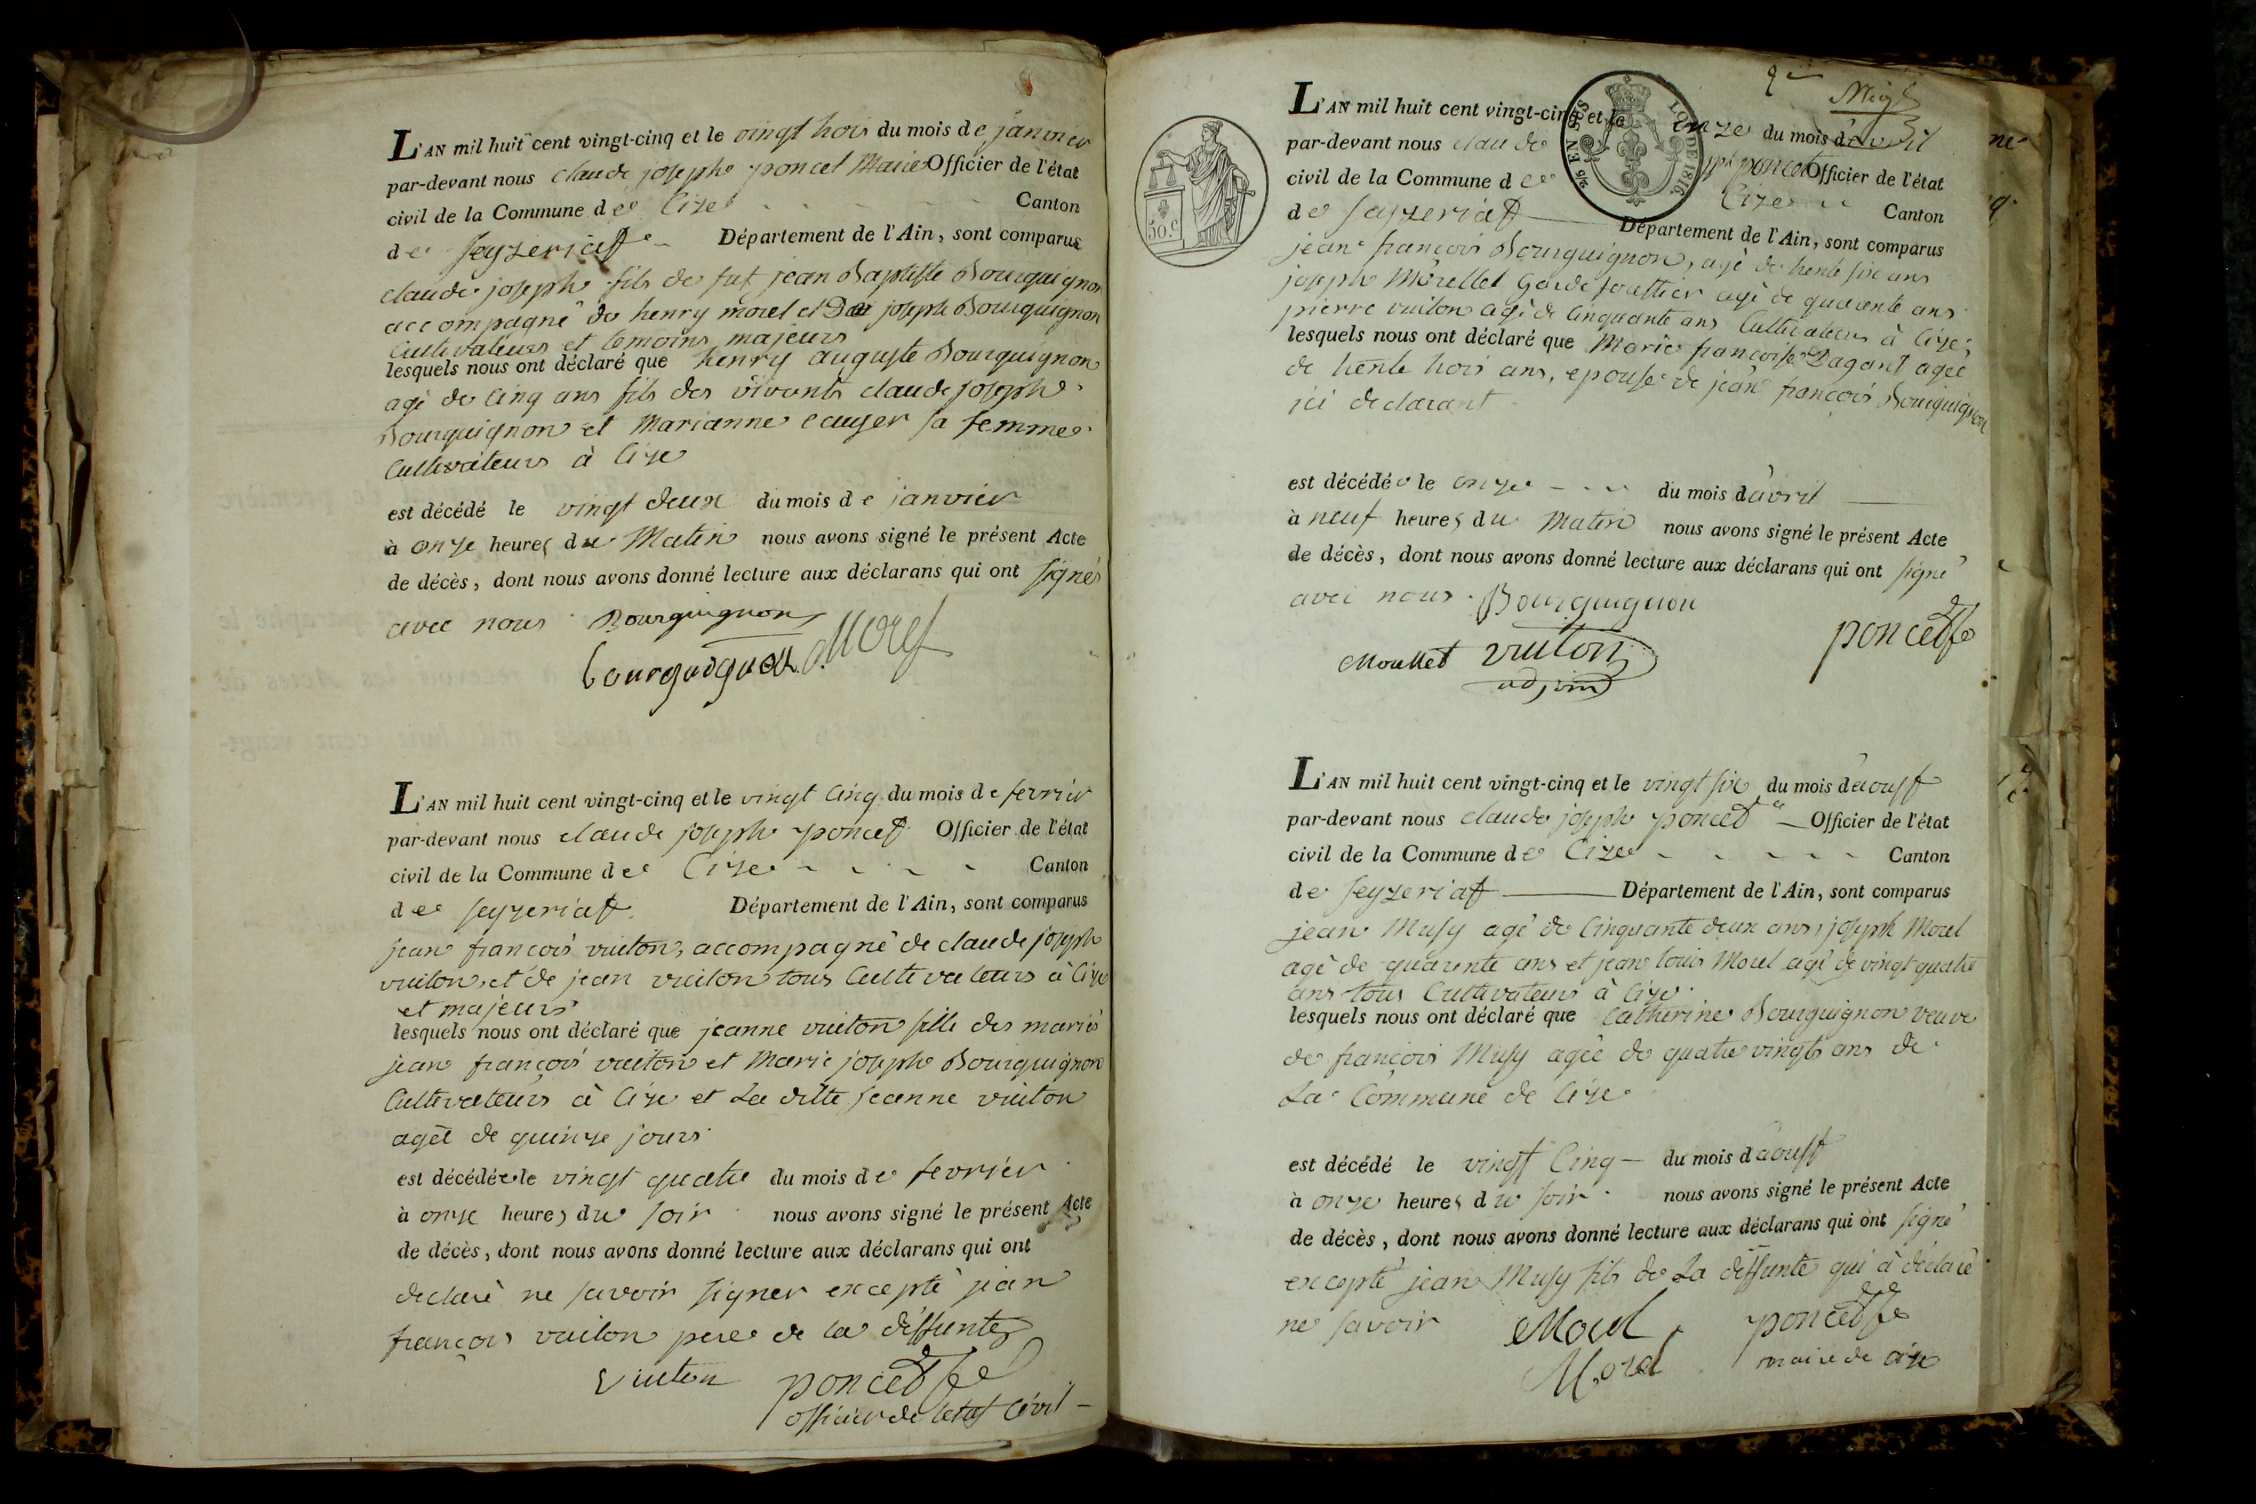 L'AN mil huit cent vingt-cinq et le vingt trois du mois de janvier
par-devant nous claude joseph poncet Maire Officier de l'état
civil de la Commune de Cize Canton
de seyzeriat Département de l'Ain, sont comparus
claude joseph fils de fut jean Baptiste Bourguignon
accompagné de henry morel et de joseph Bourguignon
Cultivateurs et temoins majeurs
lesquels nous ont déclaré que henry auguste Bourguignon
agé de Cinq ans fils des vivants claude joseph
Bourguignon et Marianne sa femme
Cultivateurs à Cize
est décédé le vingt deux du mois de janvier
à onze heures du Matin nous avons signé le présent Acte
de décès, dont nous avons donné lecture aux déclarans qui ont signés
avec nous Bourguignon
bourguignon Morel
L'AN mil huit cent vingt-cinq et le vingt Cinq du mois de fevrier
par-devant nous claude joseph poncet Officier de l'état
civil de la Commune de Cize Canton
de seyzeriat Département de l'Ain, sont comparus
jean françois vuiton, accompagné de claude joseph
vuiton et de jean vuiton tous Cultivateurs à Cize
et majeurs
lesquels nous ont déclaré que jeanne vuiton fille des mariés
jean françois vuiton et Marie joseph Bourguignon
Cultivateurs à Cize et La ditte jeanne vuiton
agée de quinze jours
est décédée le vingt quatre du mois de fevrier
à onze heures du soir nous avons signé le présent Acte
de décès, dont nous avons donné lecture aux déclarans qui ont
declaré ne savoir signer excepté jean
françois vuiton pere de la deffunte
vuiton poncet
officier de letat Civil
2e
L'AN mil huit cent vingt-cinq et le onze du mois d'avril
par-devant nous claude jph poncet Officier de l'état
civil de la Commune de Cize Canton
de seyzeriat Département de l'Ain, sont comparus
jean françois Bourguignon, agé de trente six ans
joseph Morellet Garde forestier agé de quarante ans
pierre vuiton agé de Cinquante ans Cultivateurs à Cize
lesquels nous ont déclaré que Marie françoise Dagant agée
de trente trois ans, epouse de jean françois Bourguignon
ici declarant
est décédée le onze du mois d'avril
à neuf heures du Matin nous avons signé le présent Acte
de décès, dont nous avons donné lecture aux déclarans qui ont signé
avec nous Bourguignon
vuiton poncet
adjoint
50.C
EN SUS
LOI DE 1816
L'AN mil huit cent vingt-cinq et le vingt six du mois d'aoust
par-devant nous claude joseph poncet Officier de l'état
civil de la Commune de Cize Canton
de seyzeriat Département de l'Ain, sont comparus
jean Musy agé de Cinquante deux ans, joseph Morel
agé de quarente ans et jean louis Morel agé de vingt quatre
ans tous Cultivateurs à Cize
lesquels nous ont déclaré que Catherine Bourguignon veuve
de françois Musy agée de quatre vingts ans de
La Commune de Cize
est décédé le vingt Cinq du mois d'aoust
à onze heures du soir nous avons signé le présent Acte
de décès, dont nous avons donné lecture aux déclarans qui ont signé
excepté jean Musy fils de La deffunte qui à déclaré
ne savoir Morel poncet
Morel maire de Cize